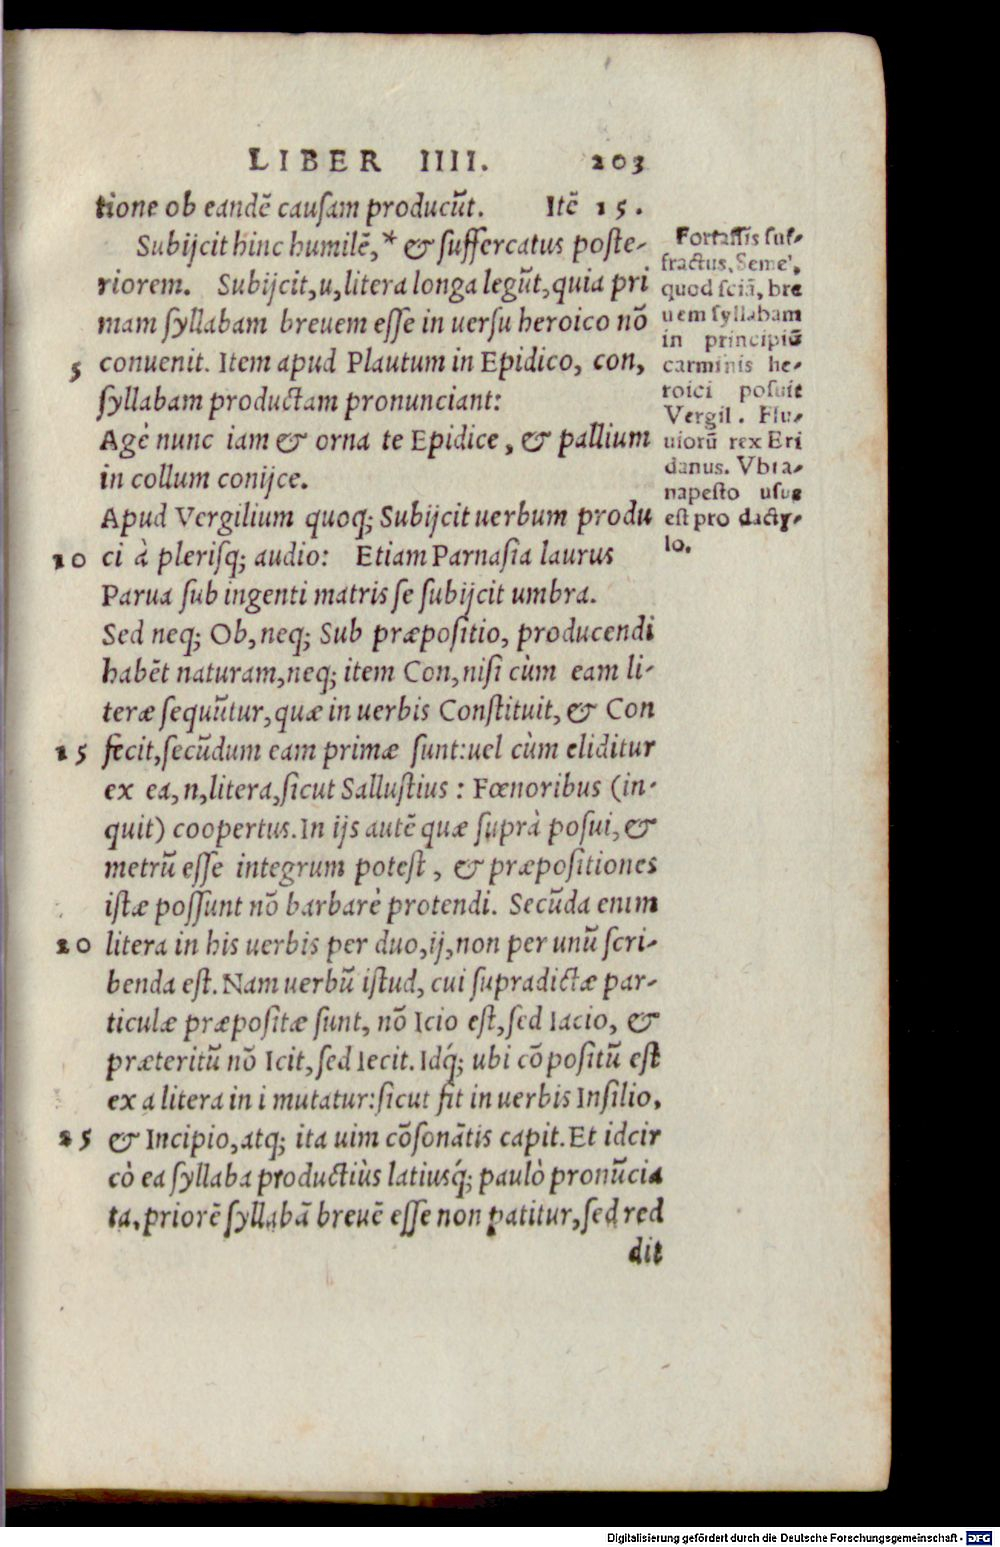 LIBER IIII. 203
tione ob eandē causam producūt. Itē 15.
Subijcit hinc humilē,* & suffercatus poste-
riorem. Subijcit,u,litera longa legūt,quia pri
mam syllabam breuem esse in uersu heroico nō
5 conuenit. Item apud Plautum in Epidico, con,
syllabam productam pronunciant:
Agè nunc iam & orna te Epidice, & pallium
in collum conijce.
Apud Vergilium quoq; Subijcit uerbum produ
10 ci à plerisq; audio: Etiam Parnasia laurus
Parua sub ingenti matris se subijcit umbra.
Sed neq; Ob,neq; Sub præpositio, producendi
habēt naturam,neq; item Con,nisi cùm eam li-
teræ sequūtur,quæ in uerbis Constituit, & Con
15 fecit,secūdum eam primæ sunt:uel cùm eliditur
ex ea,n,litera,sicut Sallustius: Fœnoribus (in-
quit) coopertus. In ijs autē quæ suprà posui, &
metrū esse integrum potest, & præpositiones
istæ possunt nō barbarè protendi. Secūda enim
20 litera in his uerbis per duo,ij,non per unū scri-
benda est. Nam uerbū istud, cui supradictæ par-
ticulæ præpositæ sunt, nō Icio est,sed Iacio, &
præteritū nō Icit,sed Iecit. Idq́; ubi cōpositū est
ex a litera in i mutatur:sicut fit in uerbis Insilio,
25 & Incipio,atq; ita uim cōsonātis capit. Et idcir
cò ea syllaba productiùs latiusq́; paulò pronūcia
ta,priorē syllabā breuē esse non patitur,sed red
dit
Fortassis suf-
fractus. Seme',
quod sciā, bre
uem syllabam
in principiū
carminis he-
roici posuit
Vergil. Flu-
uiorū rex Eri
danus. Vbi a-
napesto usus
est pro dacty-
lo.
Digitalisierung gefördert durch die Deutsche Forschungsgemeinschaft - DFG